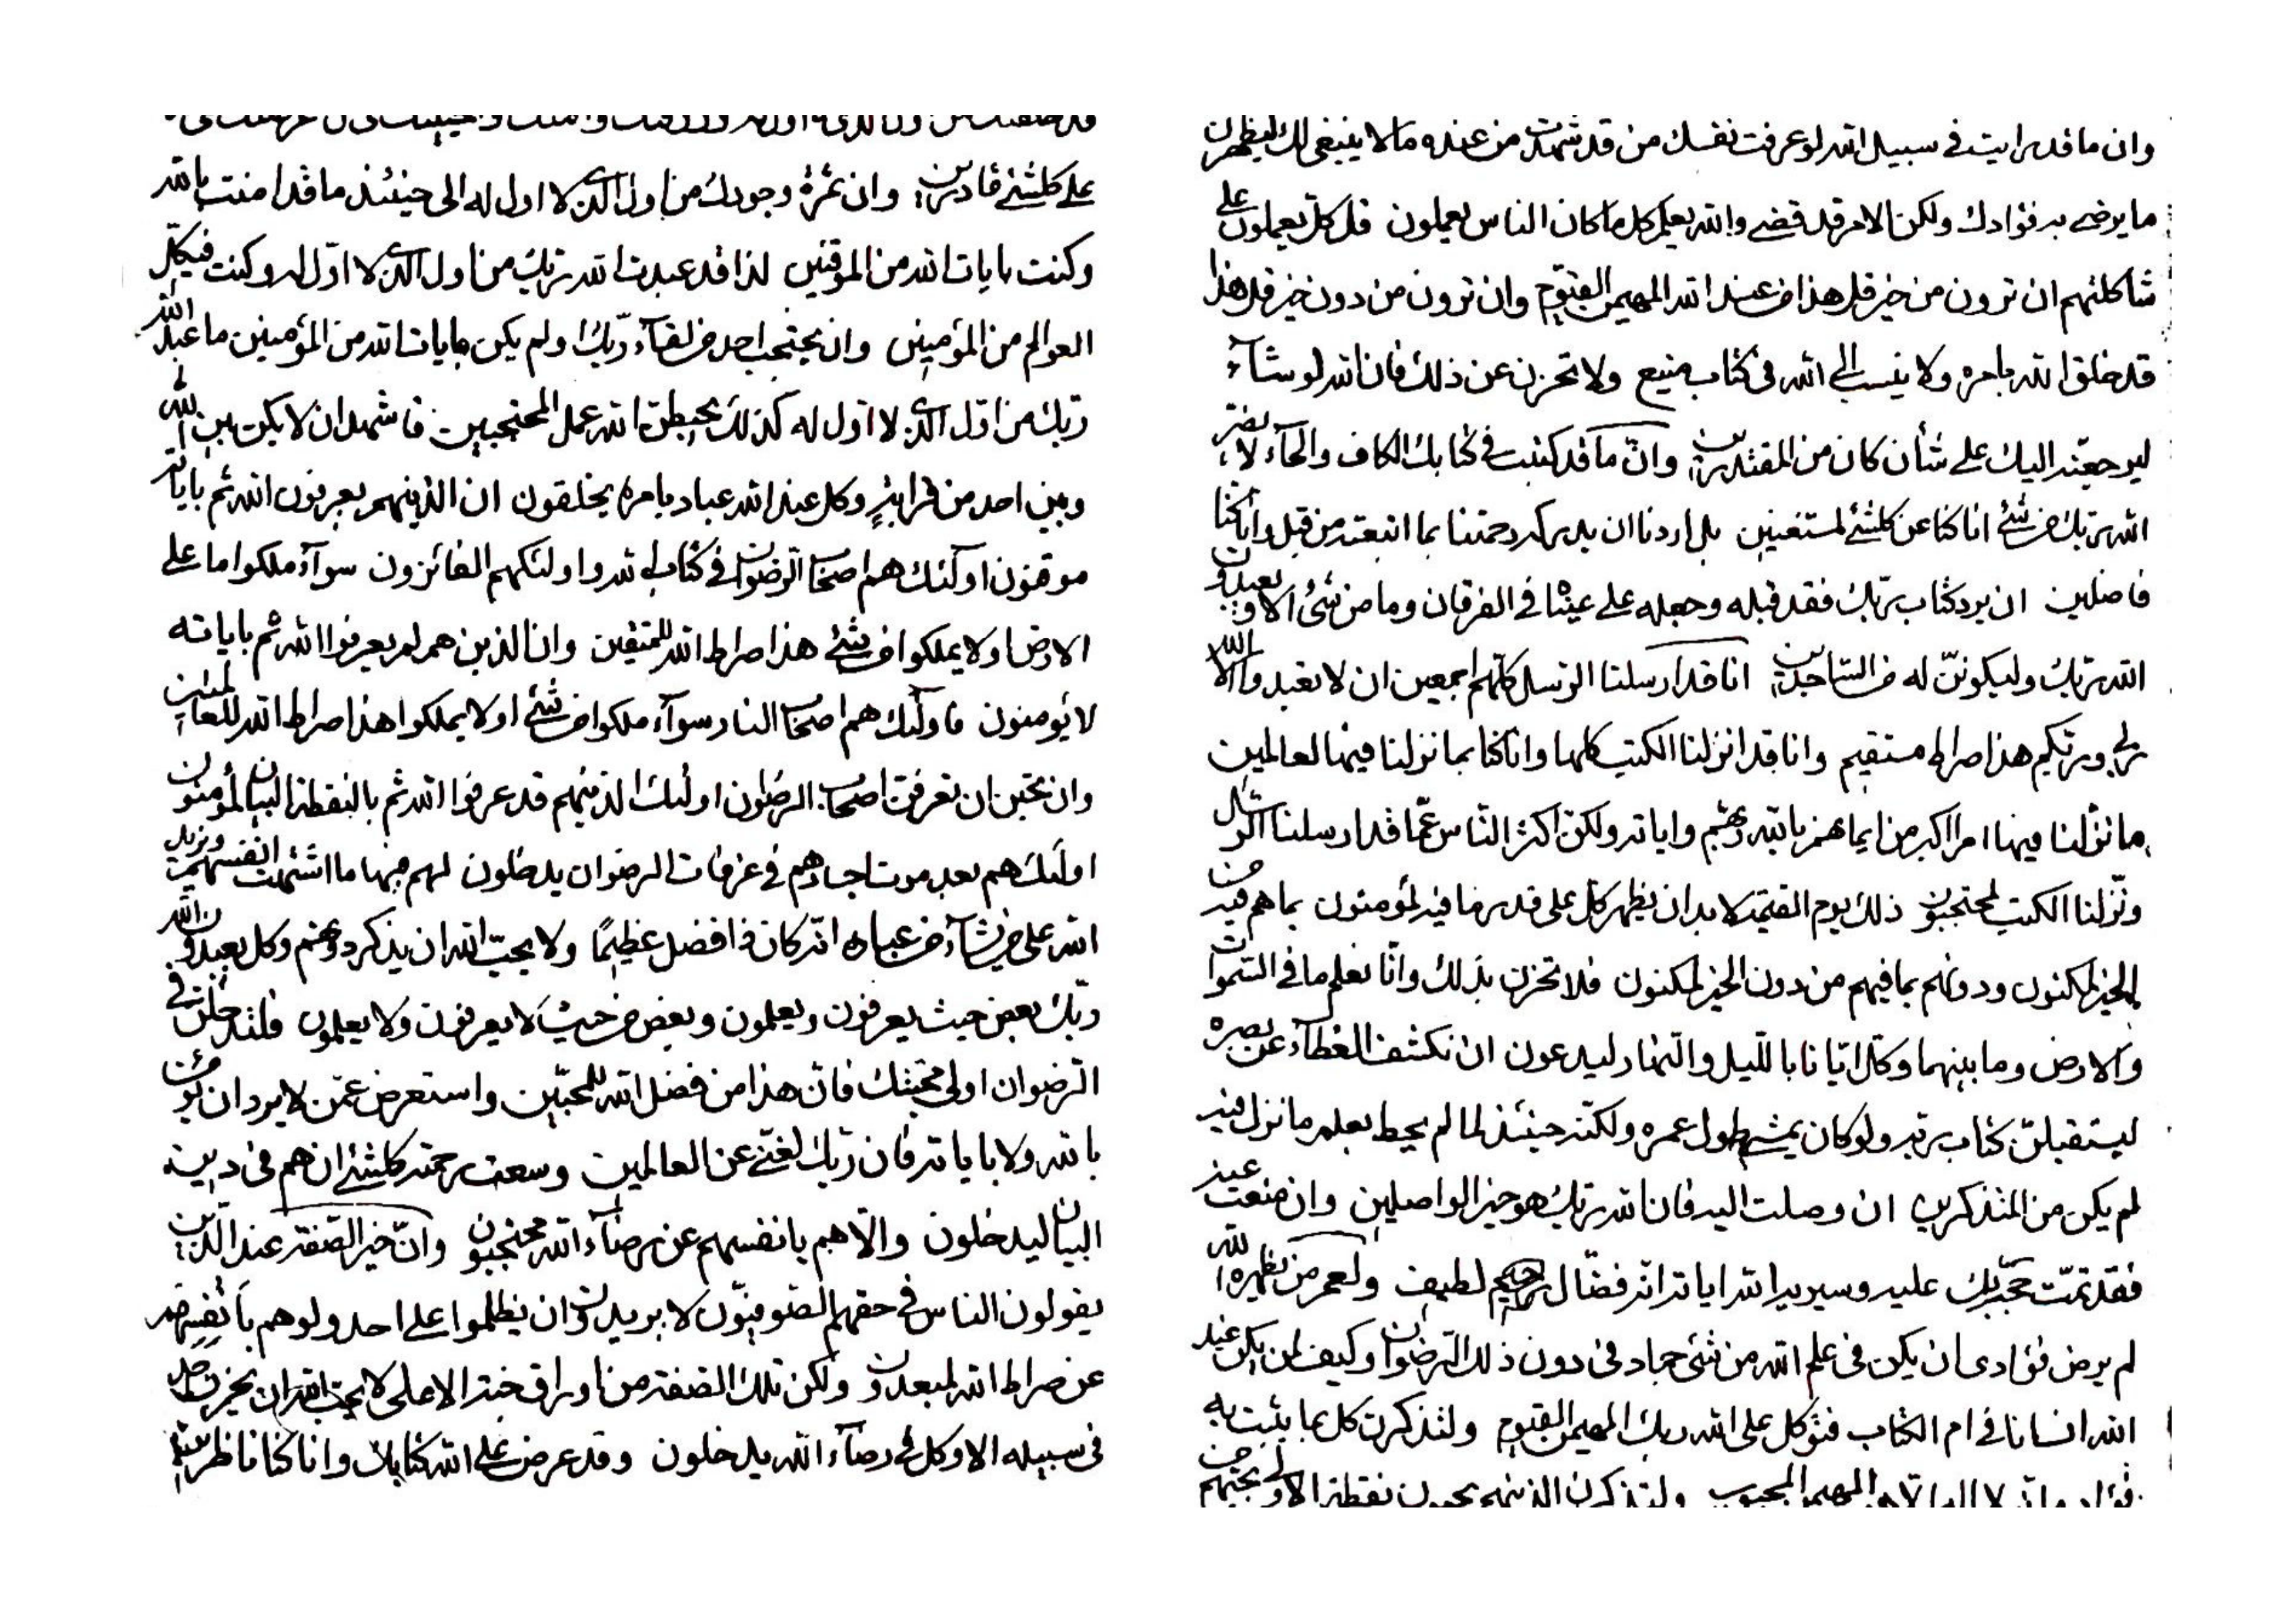 وان ما قد رايت في سبيل الله لو عرفت نفسك من قد شهدت من عنده ما لا ينبغي لك ليظهرن
ما يرضى به فؤادك ولكن الامر قد قضى والله يعلم كل ما كان الناس يعملون قل كل يعملون على
شاكلتهم ان ترون من خير قل هذا من عند الله المهيمن القيوم وان ترون من دون خير قل هذا
قد خلق الله بامره ولا ينسب الى الله في كتاب منيع ولا تحزن عن ذلك فان الله لو شآء
ليرجعنه اليك على شأن كان من المقتدرين وان ما قد كتبت في كتابك الكاف والحاء لا يضر
الله ربك من شئ انا كنا عن كلشئ لمستغنين بل اردنا ان يدركه رحمتنا بما اتبعته من قبل وانا كنا
فاضلين ان يرد كتاب ربك فقد قبله وجعله على عينا في الفرقان وما من شئ الا ويعبدون
الله ربك وليكونن له من الساجدين انا قد ارسلنا الرسل كلهم اجمعين ان لا تعبدوا الا الله
ربي وربكم هذا صراط مستقيم وانا قد انزلنا الكتب كلها وانا كنا بما نزلنا فيها لعالمين
ما نزلنا فيها امرا اكبر من ايمانهم بالله ربهم واياته ولكن اكثر الناس عما قد ارسلنا الرسل
ونزلنا الكتب لمحتجبون ذلك يوم القيمة لا بد ان يظهر كل على قدر ما فيه المؤمنون بما هم فيه من
الخير لمكنون ودونهم بما فيهم من دون الخير لمكنون فلا تحزن بذلك وانا نعلم ما في السموات
والارض وما بينهما وكل ايانا بالليل والنهار ليدعون ان نكشف الغطآء عن بصره
ليستقبلن كتاب ربه ولو كان يمشي طول عمره ولكنه حينئذ لما لم يحط بعلم ما نزل فيه
لم يكن من المتذكرين ان وصلت اليه فان الله ربك هو خير الواصلين وان منعت عنه
فقد تمت حجة ربك عليه وسيريه الله اياته انه فضال رحيم لطيف ولعمر من يظهره الله
لم يرض فؤادي ان يكن في علم الله من شئ جماد في دون ذلك الرضوان وكيف لمن يكن عند
الله انسانا في ام الكتاب فتوكل على الله ربك المهيمن القيوم ولتذكرن كل بما يثبت به
فؤاده انه لا اله الا هو المهيمن المحبوب ولتذكرن الذينهم يحبون نقطة الاولى
على كلشئ قادرين وان ثمرة وجودك من اول الذي لا اول له الى حينئذ ما قد امنت بالله
وكنت بايات الله من الموقنين لذا قد عبدت الله ربك من اول الذي لا اول له وكنت في كل
العوالم من المؤمنين وان يحتجب احد من لقآء ربك ولم يكن بايات الله من المؤمنين ما عبد الله
ربك من اول الذي لا اول له كذلك يحبطن الله عمل المحتجبين فاشهد ان لا يكن بين الله
وبين احد من قرابة وكل عند الله عباد بامره يخلقون ان الذينهم يعرفون الله ثم باياته
موقنون اولئك هم اصحاب الرضوان في كتاب الله واولئكهم الفائزون سوآء ملكوا ما على
الارض او لا يملكوا من شئ هذا صراط الله للمتقين وان الذين هم لم يعرفوا الله ثم باياته
لا يؤمنون فاولئك هم اصحاب النار سوآء ملكوا من شئ او لا يملكوا هذا صراط الله للعالمين
وان تحبن ان تعرفن اصحاب الرضوان اولئك الذينهم قد عرفوا الله ثم بالنقطة البيان لمؤمنون
اولئك هم بعد موت اجسادهم في غرفات الرضوان يدخلون لهم فيها ما اشتهت انفسهم من
الله على من يشآء من عباده انه كان ذا فضل عظيما ولا يحب الله ان يذكر دونهم وكل يعبدون الله
ربك بعض حيث يعرفون ويعلمون وبعض من حيث لا يعرفون ولا يعلمون فلتدخلن في
الرضوان اولي محبتك فان هذا من فضل الله للمحبين واستعرض عمن لا يرد ان يؤمن
بالله ولا باياته فان ربك لغني عن العالمين وسعت رحمته كلشئ ان هم في دين
البيان ليدخلون والا هم بانفسهم عن رضآء الله محتجبون وان خير الصفة عند الذين
يقولون الناس في حقهم الصوفيون لا يريدون ان يظلموا على احد ولو هم بانفسهم
عن صراط الله لمبعدون ولكن تلك الصفة من اوراق جنة الاعلى لا يحب الله ان يحزن احد
في سبيله الا وكل في رضآء الله يدخلون وقد عرض على الله كتابك وانا كنا ناظرين